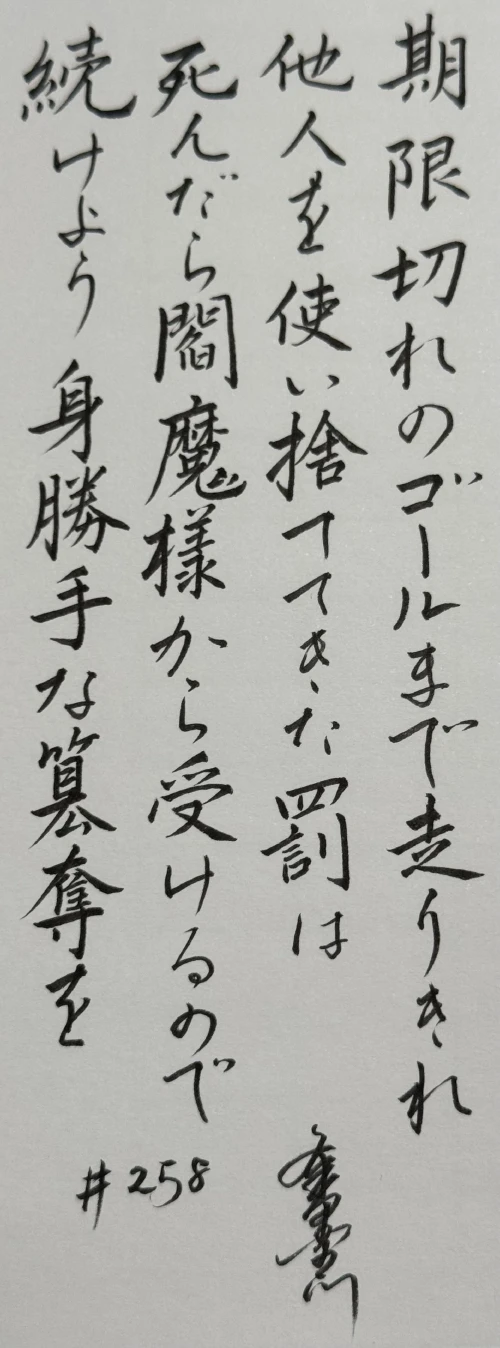 期限切れのゴールまで走りきれ
他人を使い捨ててきた罰は
死んだら閻魔様から受けるので
続けよう身勝手な簒奪を
#258